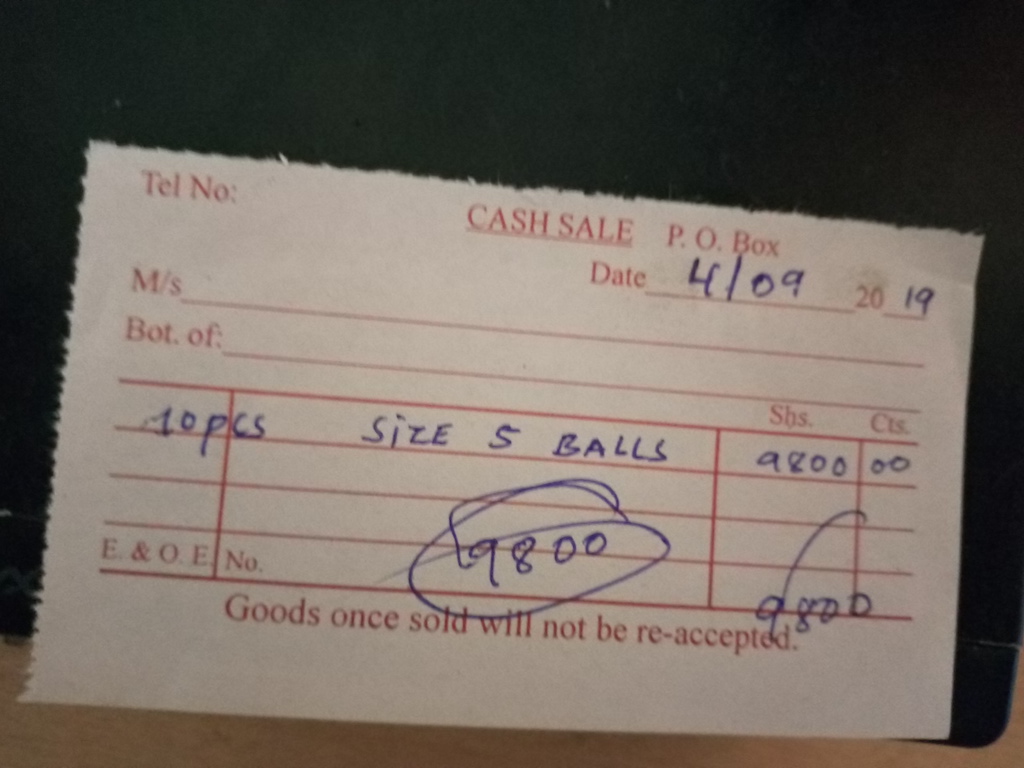 Tel No:
CASH SALE P. O. Box
Date 4/09 2019
M/s
Bot. of:
Shs. Cts.
10pcs SIZE 5 BALLS 9800 00
9800
E. & O. E. No.
9,800
Goods once sold will not be re-accepted.